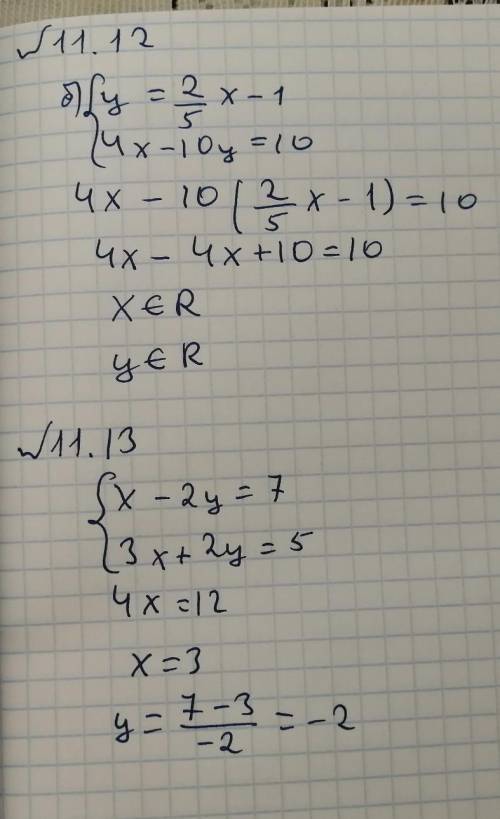 √11.12
б) { y = 2/5 x - 1
4x - 10y = 10
4x - 10 (2/5 x - 1) = 10
4x - 4x + 10 = 10
x ∈ R
y ∈ R
√11.13
{ x - 2y = 7
3x + 2y = 5
4x = 12
x = 3
y = (7 - 3)/(-2) = -2